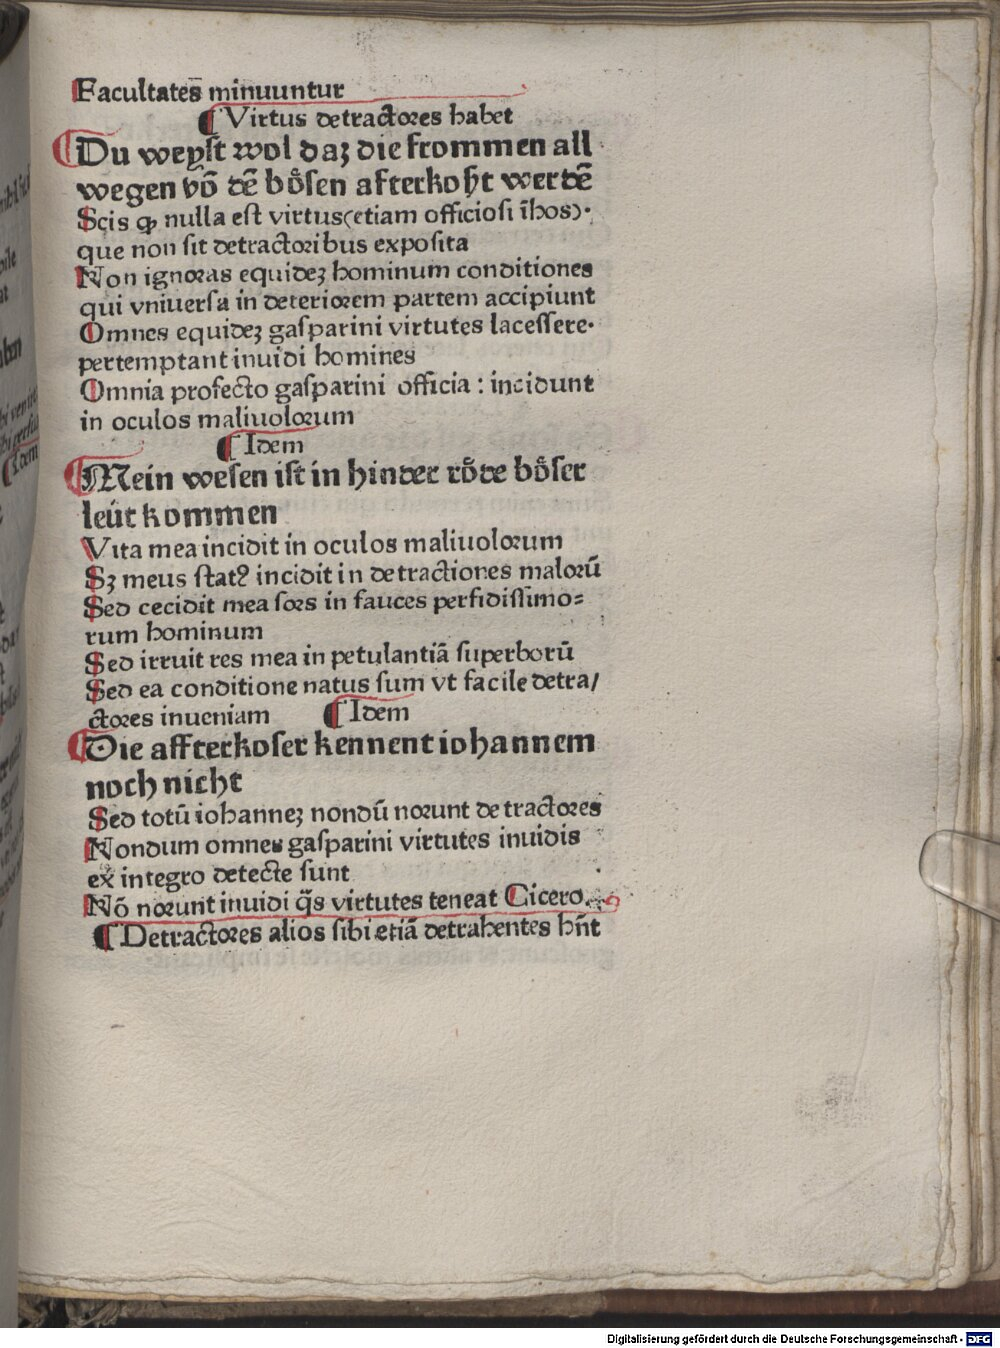 Facultates̄ minuuntur
¶ Virtus detractores habet
¶ Du weyſt wol daꝫ die frommen all
wegen võ dē boͤſen afterkoſzt werdē
Scis ꝙ nulla eſt virtus(etiam officioſi īhos)·
que non ſit detractoribus expoſita
Non ignoras equideꝫ hominum conditiones
qui vniuerſa in deteriorem partem accipiunt
Omnes equideꝫ gaſparini virtutes laceſſere·
pertemptant inuidi homines
Omnia profecto gaſparini officia : incidunt
in oculos maliuolorum
¶ Idem
¶ Mein weſen iſt in hinder roͤde boͤſer
leüt kommen
Vita mea incidit in oculos maliuolorum
Sꝫ meus ſtatꝰ incidit in detractiones malorū
Sed cecidit mea ſors in fauces perfidiſſimo=
rum hominum
Sed irruit res mea in petulantiā ſuperborū
Sed ea conditione natus ſum vt facile detra/
ctores inueniam ¶ Idem
¶ Die affterkoſer kennent iohannem
noch nicht
Sed totū iohanneꝫ nondū norunt detractores
Nondum omnes gaſparini virtutes inuidis
ex integro detecte ſunt
Nō norunt inuidi q̄s virtutes teneat Cicero.
¶ Detractores alios ſibi etiā detrahentes hn̄t
Digitalisierung gefördert durch die Deutsche Forschungsgemeinschaft - DFG